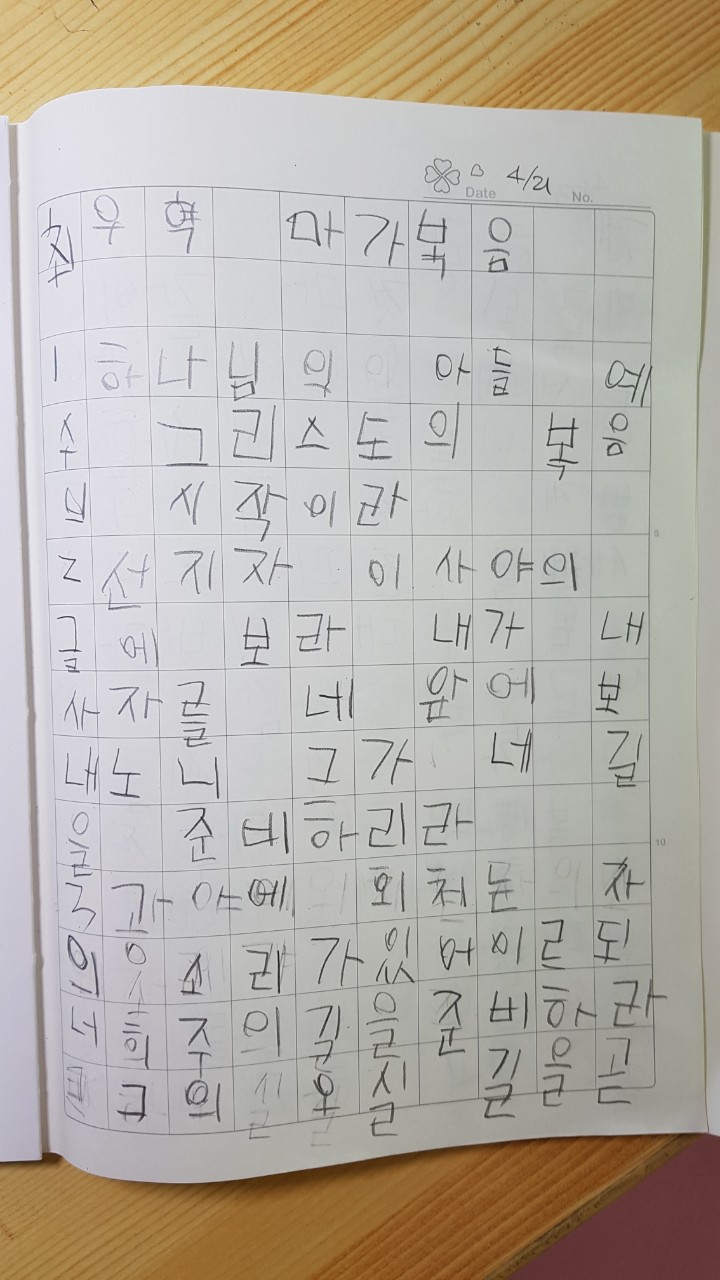 Date 4/21 No.
최우혁 마가복음
1 하나님의 아들 예
수 그리스도의 복음
의 시작이라
2 선지자 이사야의
글에 보라 내가 내
사자를 네 앞에 보
내노니 그가 네 길
을 준비하리라
10
3 과야에 회처는 자
의 소리가있어이르되
너희주의길을준비하라
그의 오실 길을곧